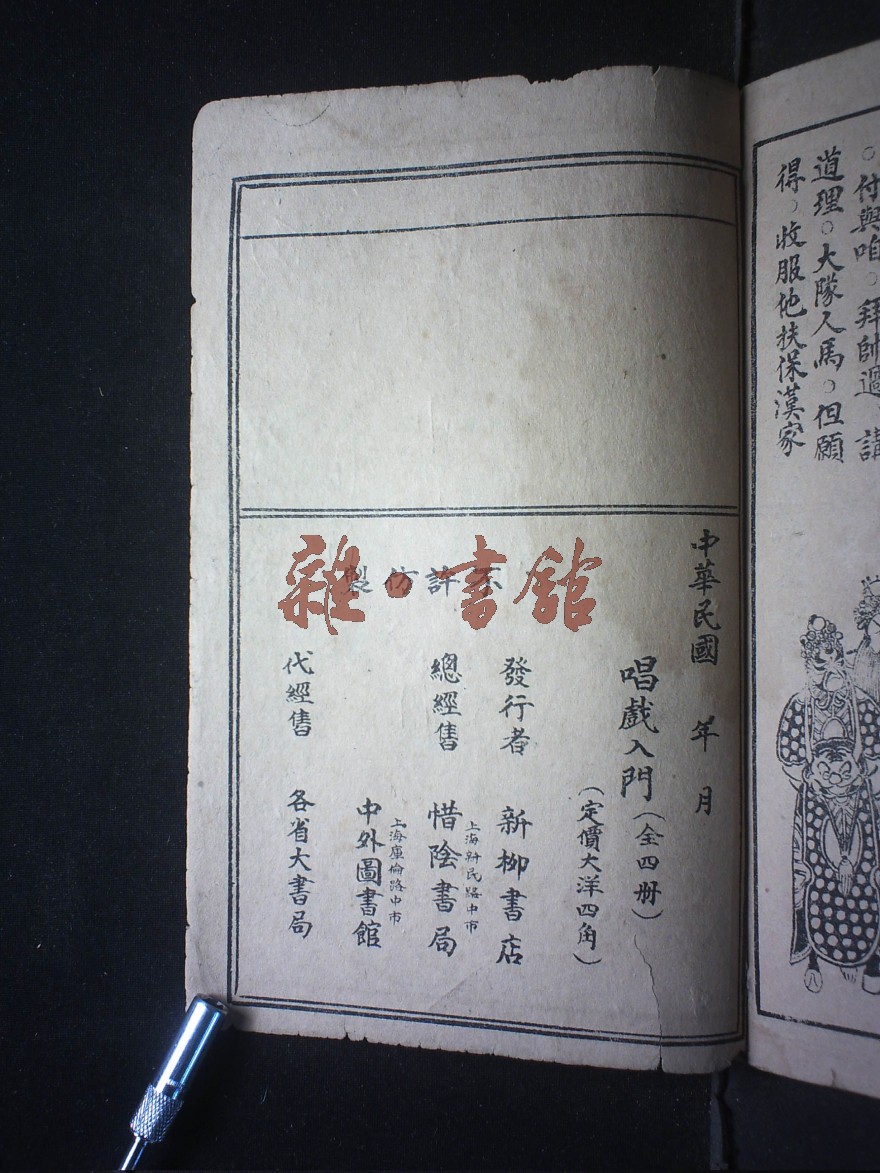 付與咱○拜帥過 講
道理○大隊人馬○但願
得○收服他扶保漢家
中華民國　年　月
唱戲入門（全四冊）
（定價大洋四角）
不許仿製
發行者　新柳書店
上海新民路中市
總經售　惜陰書局
上海庫倫路中市
中外圖書館
代經售　各省大書局
雜·書館